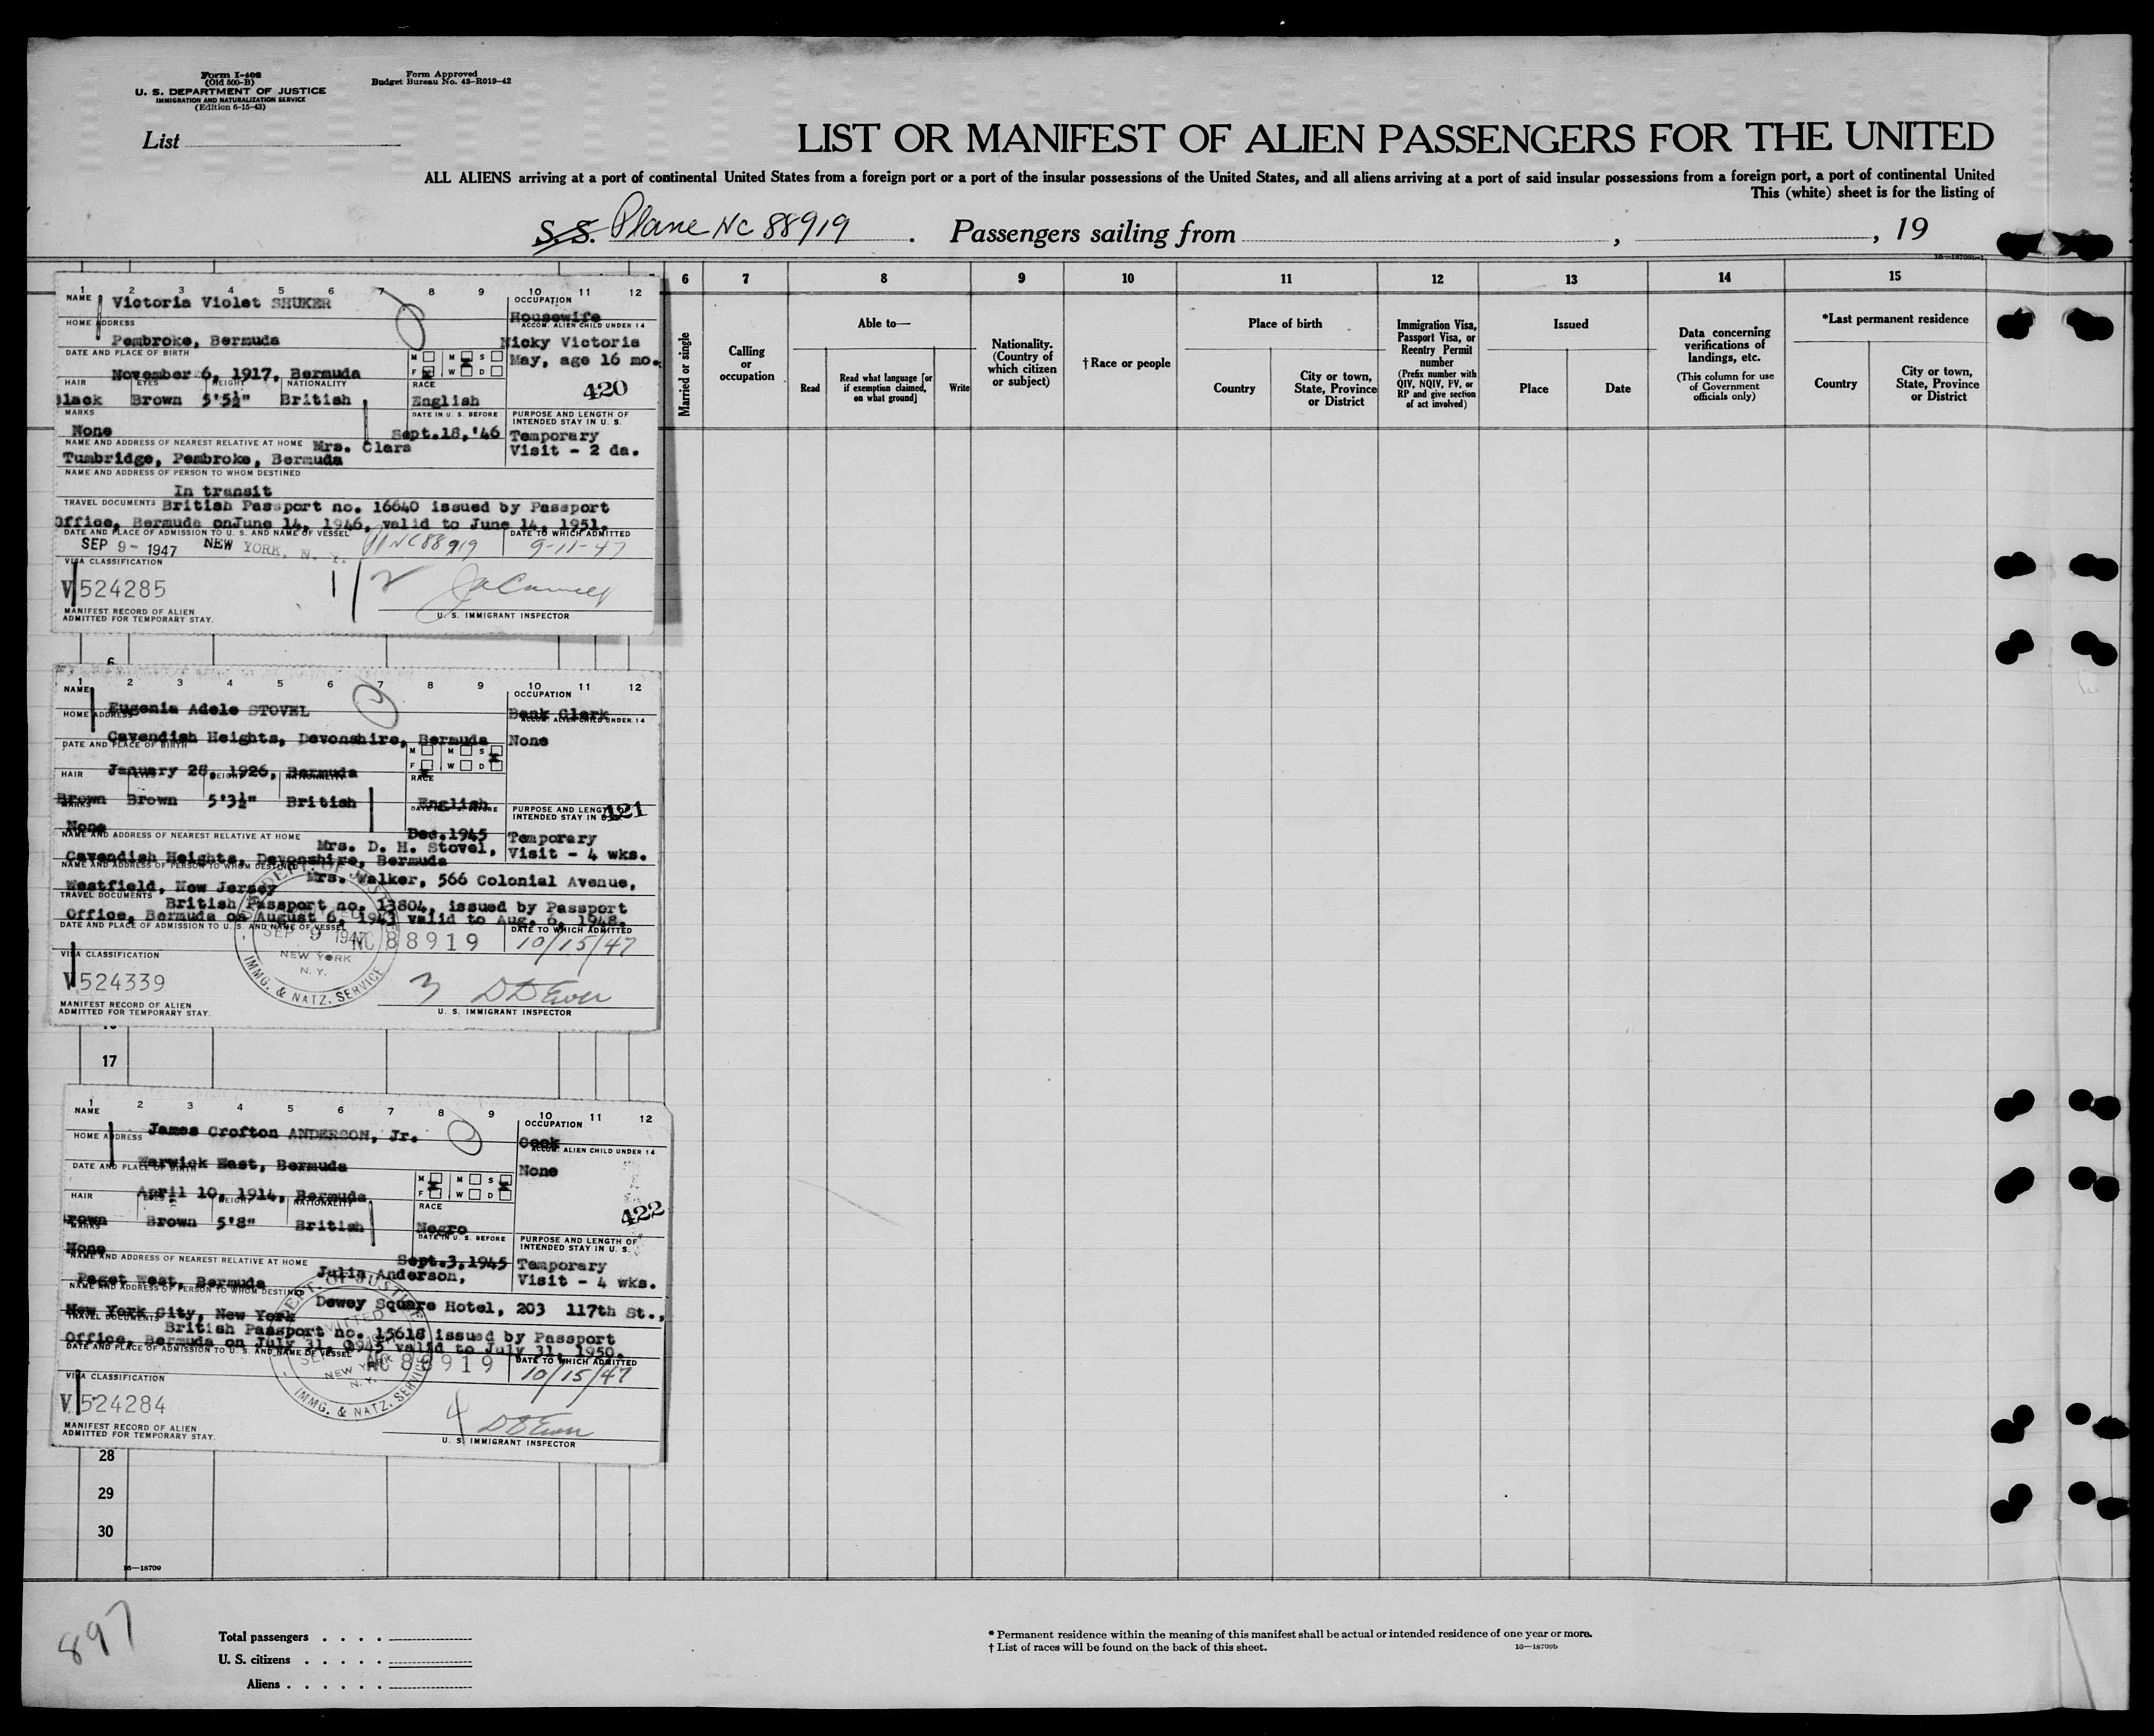 Form I-408
(Old 500-B)
U. S. DEPARTMENT OF JUSTICE
IMMIGRATION AND NATURALIZATION SERVICE
(Edition 6-15-43)
Form Approved
Budget Bureau No. 43-R019-42
List
LIST OR MANIFEST OF ALIEN PASSENGERS FOR THE UNITED
ALL ALIENS arriving at a port of continental United States from a foreign port or a port of the insular possessions of the United States, and all aliens arriving at a port of said insular possessions from a foreign port, a port of continental United
This (white) sheet is for the listing of
S.S. Plane NC 88919 . Passengers sailing from , , 19
6 7 8 9 10 11 12 13 14 15
Married or single
Calling or occupation
Able to—
Read
Read what language [or if exemption claimed, on what ground]
Write
Nationality. (Country of which citizen or subject)
†Race or people
Place of birth
Country
City or town, State, Province or District
Immigration Visa, Passport Visa, or Reentry Permit number
(Prefix number with QIV, NQIV, PV, or RP and give section of act involved)
Issued
Place
Date
Data concerning verifications of landings, etc.
(This column for use of Government officials only)
*Last permanent residence
Country
City or town, State, Province or District
1 2 3 4 5 6 7 8 9 10 11 12
NAME Victoria Violet SHUKER
OCCUPATION
Housewife
HOME ADDRESS
Pembroke, Bermuda
ACCOM. ALIEN CHILD UNDER 14
Nicky Victoria
May, age 16 mo.
DATE AND PLACE OF BIRTH
November 6, 1917, Bermuda
M F M W S D
420
HAIR EYES HEIGHT NATIONALITY RACE
Black Brown 5'5½" British English
MARKS
None
DATE IN U. S. BEFORE
Sept.18,'46
PURPOSE AND LENGTH OF INTENDED STAY IN U. S.
Temporary
Visit - 2 da.
NAME AND ADDRESS OF NEAREST RELATIVE AT HOME Mrs. Clara
Tumbridge, Pembroke, Bermuda
NAME AND ADDRESS OF PERSON TO WHOM DESTINED
In transit
TRAVEL DOCUMENTS British Passport no. 16640 issued by Passport
Office, Bermuda onJune 14, 1946, valid to June 14, 1951.
DATE AND PLACE OF ADMISSION TO U. S. AND NAME OF VESSEL
SEP 9 - 1947 NEW YORK, N. Y. NC88919
DATE TO WHICH ADMITTED
9-11-47
VISA CLASSIFICATION
V 524285
2
MANIFEST RECORD OF ALIEN
ADMITTED FOR TEMPORARY STAY.
U. S. IMMIGRANT INSPECTOR
6
1 2 3 4 5 6 7 8 9 10 11 12
NAME
Eugenia Adele STOVEL
OCCUPATION
Bank Clerk
HOME ADDRESS
Cavendish Heights, Devonshire, Bermuda
ACCOM. ALIEN CHILD UNDER 14
None
DATE AND PLACE OF BIRTH
January 28, 1926, Bermuda
M F M W S D
HAIR HEIGHT NATIONALITY RACE
Brown Brown 5'3½" British English
MARKS
None
DATE IN U. S. BEFORE
Dec.1945
PURPOSE AND LENGTH OF INTENDED STAY IN U. S.
421
Temporary
Visit - 4 wks.
NAME AND ADDRESS OF NEAREST RELATIVE AT HOME
Mrs. D. H. Stovel,
Cavendish Heights, Devonshire, Bermuda
NAME AND ADDRESS OF PERSON TO WHOM DESTINED
Mrs. Walker, 566 Colonial Avenue,
Westfield, New Jersey
TRAVEL DOCUMENTS
British Passport no. 13804, issued by Passport
Office, Bermuda on August 6, 1943 valid to Aug. 6, 1948.
DATE AND PLACE OF ADMISSION TO U. S. AND NAME OF VESSEL
SEP 9 1947
NEW YORK
N. Y.
IMMG. & NATZ. SERVICE
NC 88919
DATE TO WHICH ADMITTED
10/15/47
VISA CLASSIFICATION
V 524339
3
MANIFEST RECORD OF ALIEN
ADMITTED FOR TEMPORARY STAY.
U. S. IMMIGRANT INSPECTOR
17
1 2 3 4 5 6 7 8 9 10 11 12
NAME
James Crofton ANDERSON, Jr.
OCCUPATION
Cook
HOME ADDRESS
Warwick East, Bermuda
ACCOM. ALIEN CHILD UNDER 14
None
DATE AND PLACE OF BIRTH
April 10, 1914, Bermuda
M F M W S D
422
HAIR HEIGHT NATIONALITY RACE
Brown Brown 5'8" British Negro
MARKS
None
DATE IN U. S. BEFORE
Sept.3,1945
PURPOSE AND LENGTH OF INTENDED STAY IN U. S.
Temporary
Visit - 4 wks.
NAME AND ADDRESS OF NEAREST RELATIVE AT HOME
Julia Anderson,
Paget West, Bermuda
NAME AND ADDRESS OF PERSON TO WHOM DESTINED
Dewey Square Hotel, 203 117th St.,
New York City, New York
TRAVEL DOCUMENTS
British Passport no. 15618 issued by Passport
Office, Bermuda on July 31, 1945 valid to July 31, 1950.
DATE AND PLACE OF ADMISSION TO U. S. AND NAME OF VESSEL
DEPT. OF JUSTICE
ADMITTED
NEW YORK
N. Y.
IMMG. & NATZ. SERVICE
NC 88919
DATE TO WHICH ADMITTED
10/15/47
VISA CLASSIFICATION
V 524284
4
MANIFEST RECORD OF ALIEN
ADMITTED FOR TEMPORARY STAY.
U. S. IMMIGRANT INSPECTOR
28
29
30
16—18709
897
Total passengers . . . .
U. S. citizens . . . . .
Aliens . . . . . .
* Permanent residence within the meaning of this manifest shall be actual or intended residence of one year or more.
† List of races will be found on the back of this sheet.
16—18709b